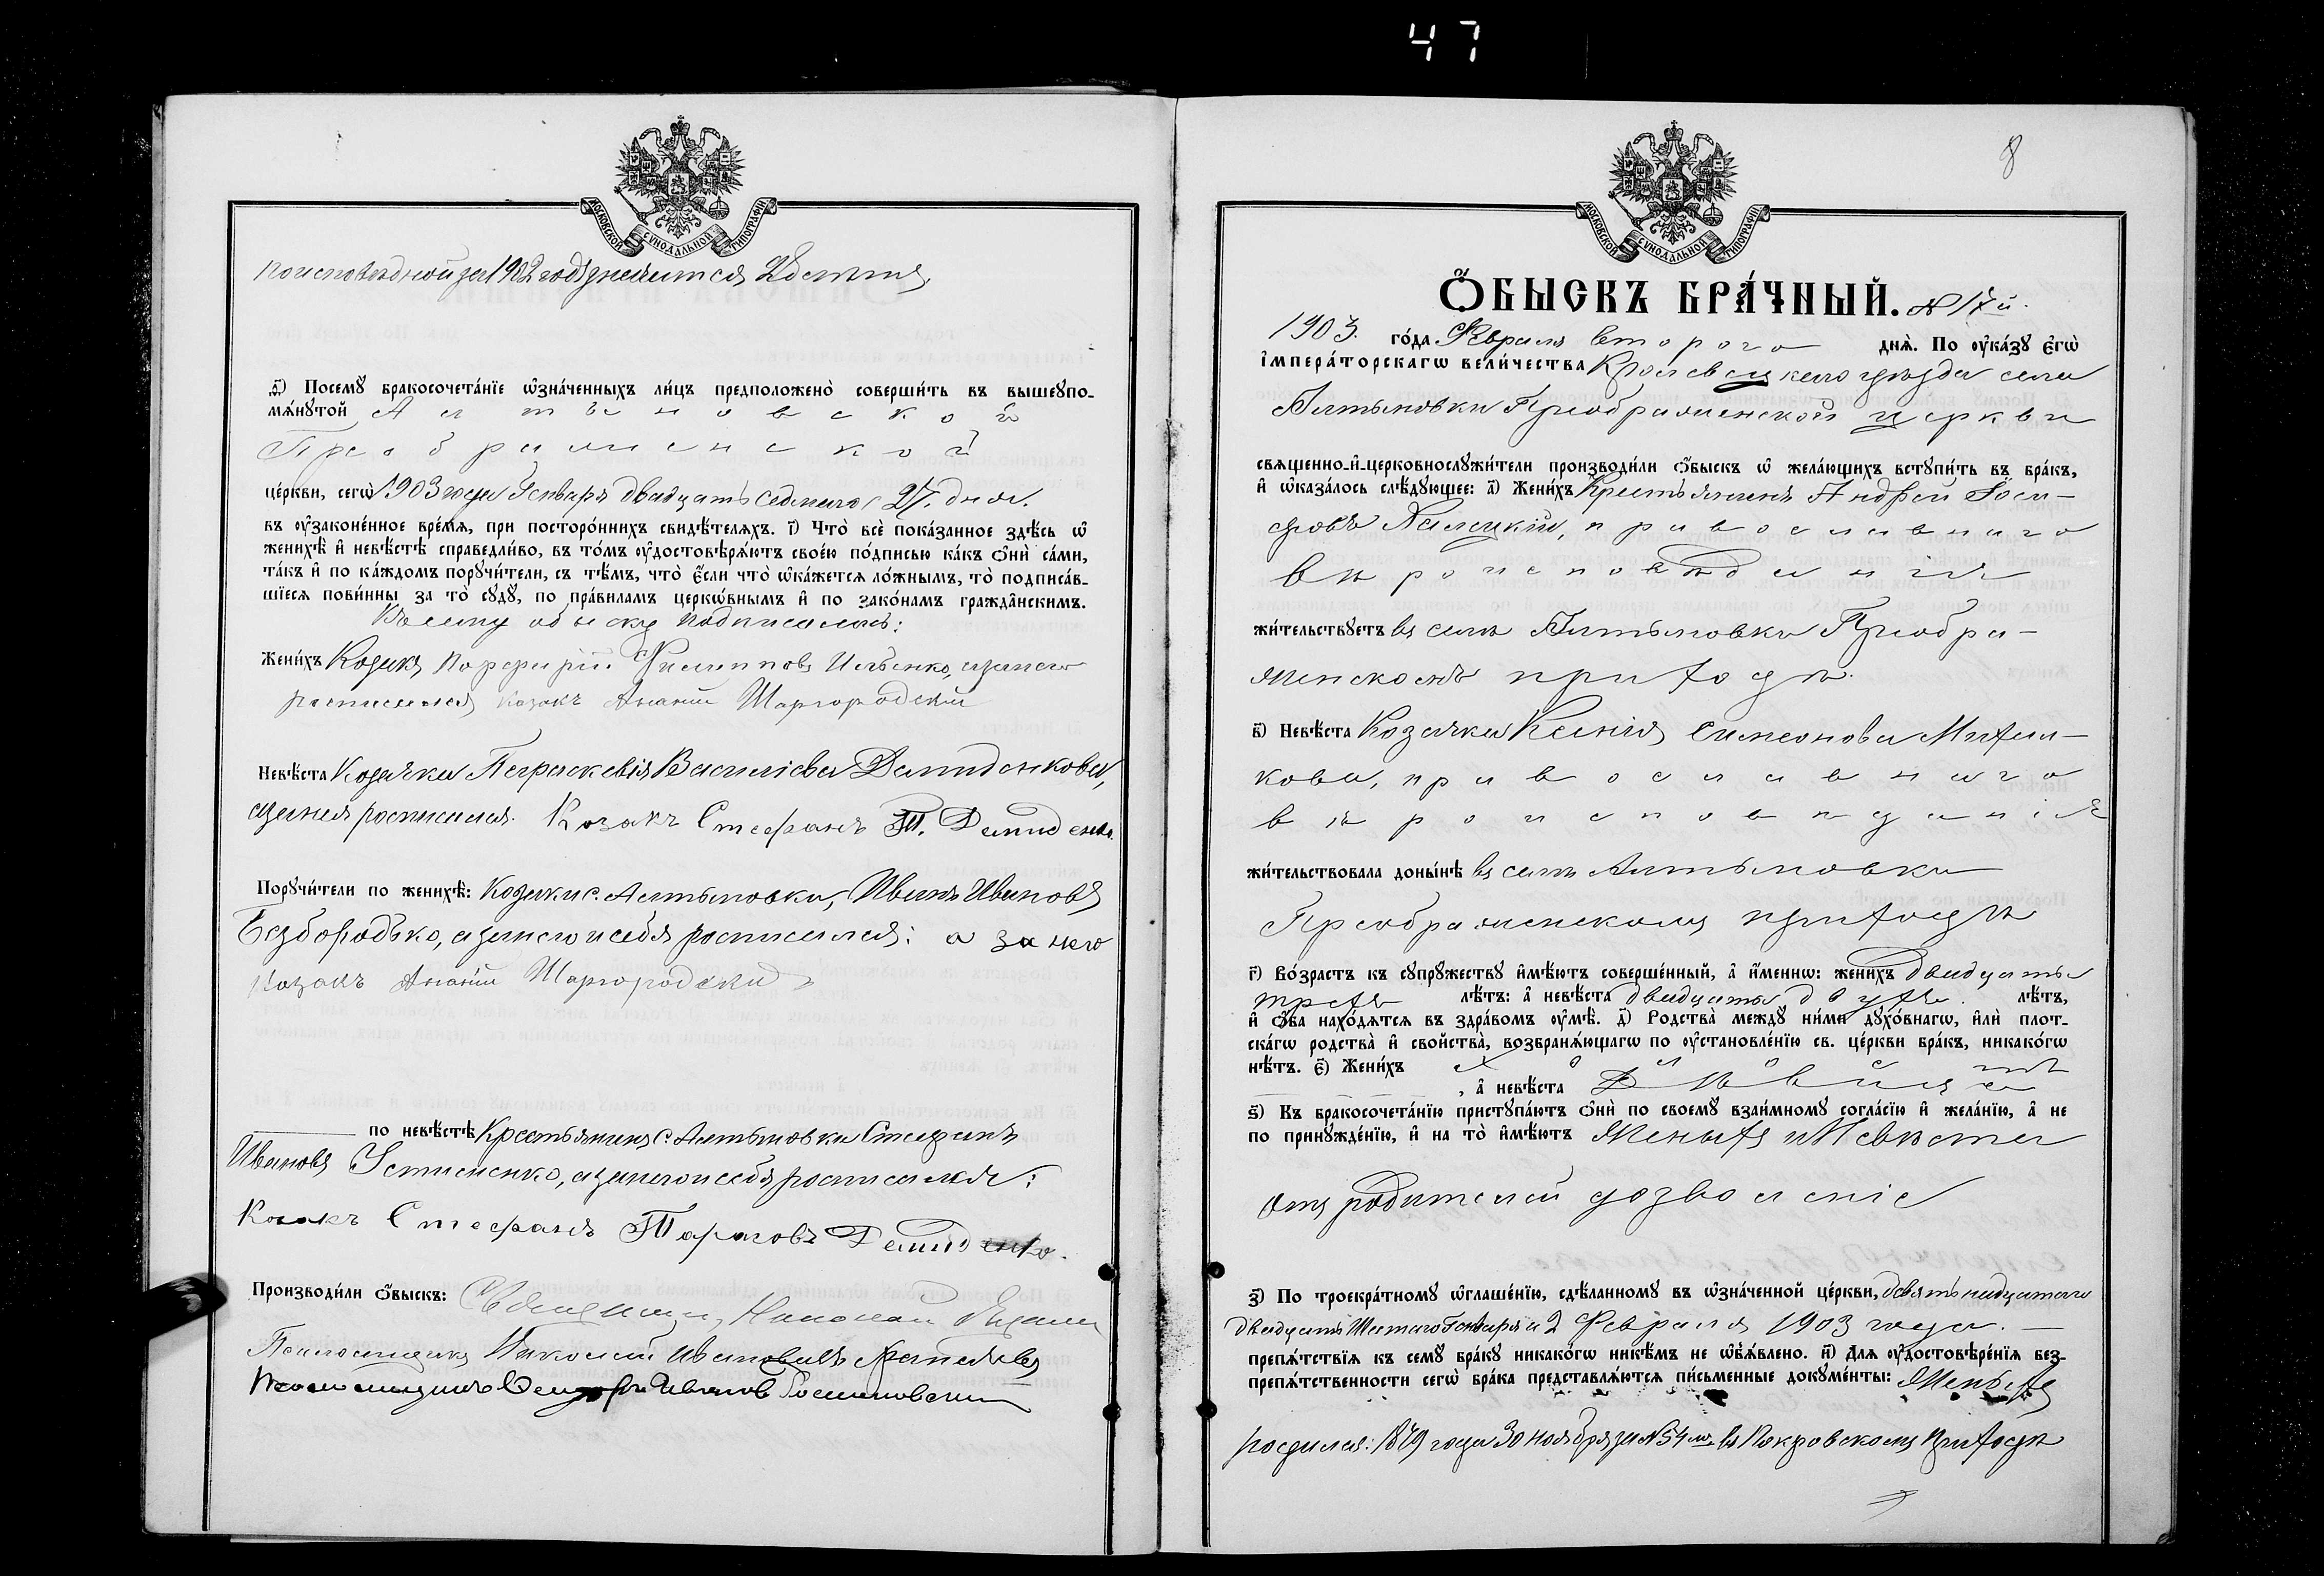 47
МОСКОВСКОЙ СѴНОДАЛЬНОЙ ТИПОГРАФІИ
по исповѣдной за 1902 годъ значится
д҃) Посемꙋ бракосочета́нїе ѡ҆зна́ченныхъ ли́цъ предположено̀ соверши́ть въ вышеꙋпо-
мѧ́нꙋтой Алтыновской
Преображенской
це́ркви, сегѡ̀ 1903 года Генваря двадцать седьмаго 27. дня.
въ ᲂу҆зако́ненное вре́мѧ, при посторо́ннихъ свидѣ́телѧхъ. і҃) Что̀ всѐ пока́занное здѣ́сь ѡ҆
женихѣ̀ и҆ невѣ́стѣ справедли́во, въ то́мъ ᲂу҆достовѣрѧ́ютъ свое́ю по́дписью ка́къ ѻ҆нѝ са́ми,
та́къ и҆ по ка́ждомъ порꙋчи́тели, съ тѣ́мъ, что̀ є҆́сли что̀ ѡ҆ка́жетсѧ ло́жнымъ, то̀ подписа́в-
шїесѧ пови́нны за то̀ сꙋдꙋ̀, по пра́виламъ церкѡ́внымъ и҆ по зако́намъ гражда̑нскимъ.
Къ сему обыску подписались:
Жени́хъ Козакъ Порфирій Филипповъ Ильенко, а за него
росписался козакъ Ананій Шаргородскій
Невѣ́ста Козачка Параскевія Василіева Демиденкова,
а за нея росписался. Козакъ Стефанъ Т. Демиденко.
Порꙋчи́тели по женихѣ̀: Козаки с. Алтыновки, Иванъ Ивановъ
Безбородько, а за него и себя росписался: а за него
козакъ Ананій Шаргородскій
по невѣ́стѣ Крестьянинъ с. Алтыновки Стефанъ
Ивановъ Устименко, а за него и себя росписался:
Козакъ Стефанъ Тарасовъ Демиденко.
Производи́ли ѻ҆́быскъ: Священникъ, Николай
Псаломщикъ Николай Ивановичъ
Псаломщикъ Иванов
8
МОСКОВСКОЙ СѴНОДАЛЬНОЙ ТИПОГРАФІИ
Ѻ҆́БЫСКЪ БРА́ЧНЫЙ. № 17й.
1903. го́да Февраля второго днѧ̀. По ᲂу҆ка́зꙋ є҆гѡ̀
і҆мпера́торскагѡ вели́чества Кролевецкаго уѣзда села
Алтыновки Преображенской церкви
свѧщенно-и҆-церковнослꙋжи́тели производи́ли ѻ҆́быскъ ѡ҆ жела́ющихъ встꙋпи́ть въ бра́къ,
и҆ ѡ҆каза́лось слѣ́дꙋющее: а҃) Жени́хъ Крестьянинъ Андрей Іоси-
фовъ Халецкій, православнаго
вѣроисповѣданія
жи́тельствꙋетъ въ селѣ Алтыновки Преобра-
женскомъ приходѣ.
в҃) Невѣ́ста Козачка Ксенія Симеонова Михал-
кова, православнаго
вѣроисповѣданія
жи́тельствовала доны́нѣ въ селѣ Алтыновки
Преображенскомъ приходѣ
г҃) Во́зрастъ къ сꙋпрꙋжествꙋ и҆мѣ́ютъ соверше́нный, а҆ и҆́меннѡ: жени́хъ двадцать
трехъ лѣ́тъ: а҆ невѣ́ста двадцать двухъ. лѣ́тъ,
и҆ ѻ҆́ба нахо́дѧтсѧ въ здра́вомъ ᲂу҆мѣ̀. д҃) Родства̀ междꙋ ни́ми дꙋхо́внагѡ, и҆лѝ плот-
ска́гѡ родства̀ и҆ свойства̀, возбранѧ́ющагѡ по ᲂу҆становле́нїю св. це́ркви бра́къ, никако́гѡ
нѣ́тъ. є҃) Жени́хъ холостъ
, а҆ невѣ́ста дѣвица
ѕ҃) Къ бракосочета́нїю пристꙋпа́ютъ ѻ҆нѝ по своемꙋ̀ взаи́мномꙋ согла́сїю и҆ жела́нїю, а҆ не
по принꙋжде́нїю, и҆ на то̀ и҆мѣ́ютъ Женихъ и Невѣста
отъ родителей дозволеніе
з҃) По троекра́тномꙋ ѡ҆глаше́нїю, сдѣ́ланномꙋ въ ѡ҆зна́ченной це́ркви, девятнадцатаго
двадцать Шестаго Генваря и 2 Февраля 1903 года.
препѧ́тствїѧ къ семꙋ̀ бра́кꙋ никако́гѡ никѣ́мъ не ѡ҆б̾ѧ́влено. и҃) Длѧ ᲂу҆достовѣре́нїѧ без-
препѧ́тственности сегѡ̀ бра́ка представлѧ́ютсѧ пи́сьменные докꙋме́нты: Женихъ
родился: 1879 года 30 ноября за № 54 въ Покровскомъ приходѣ